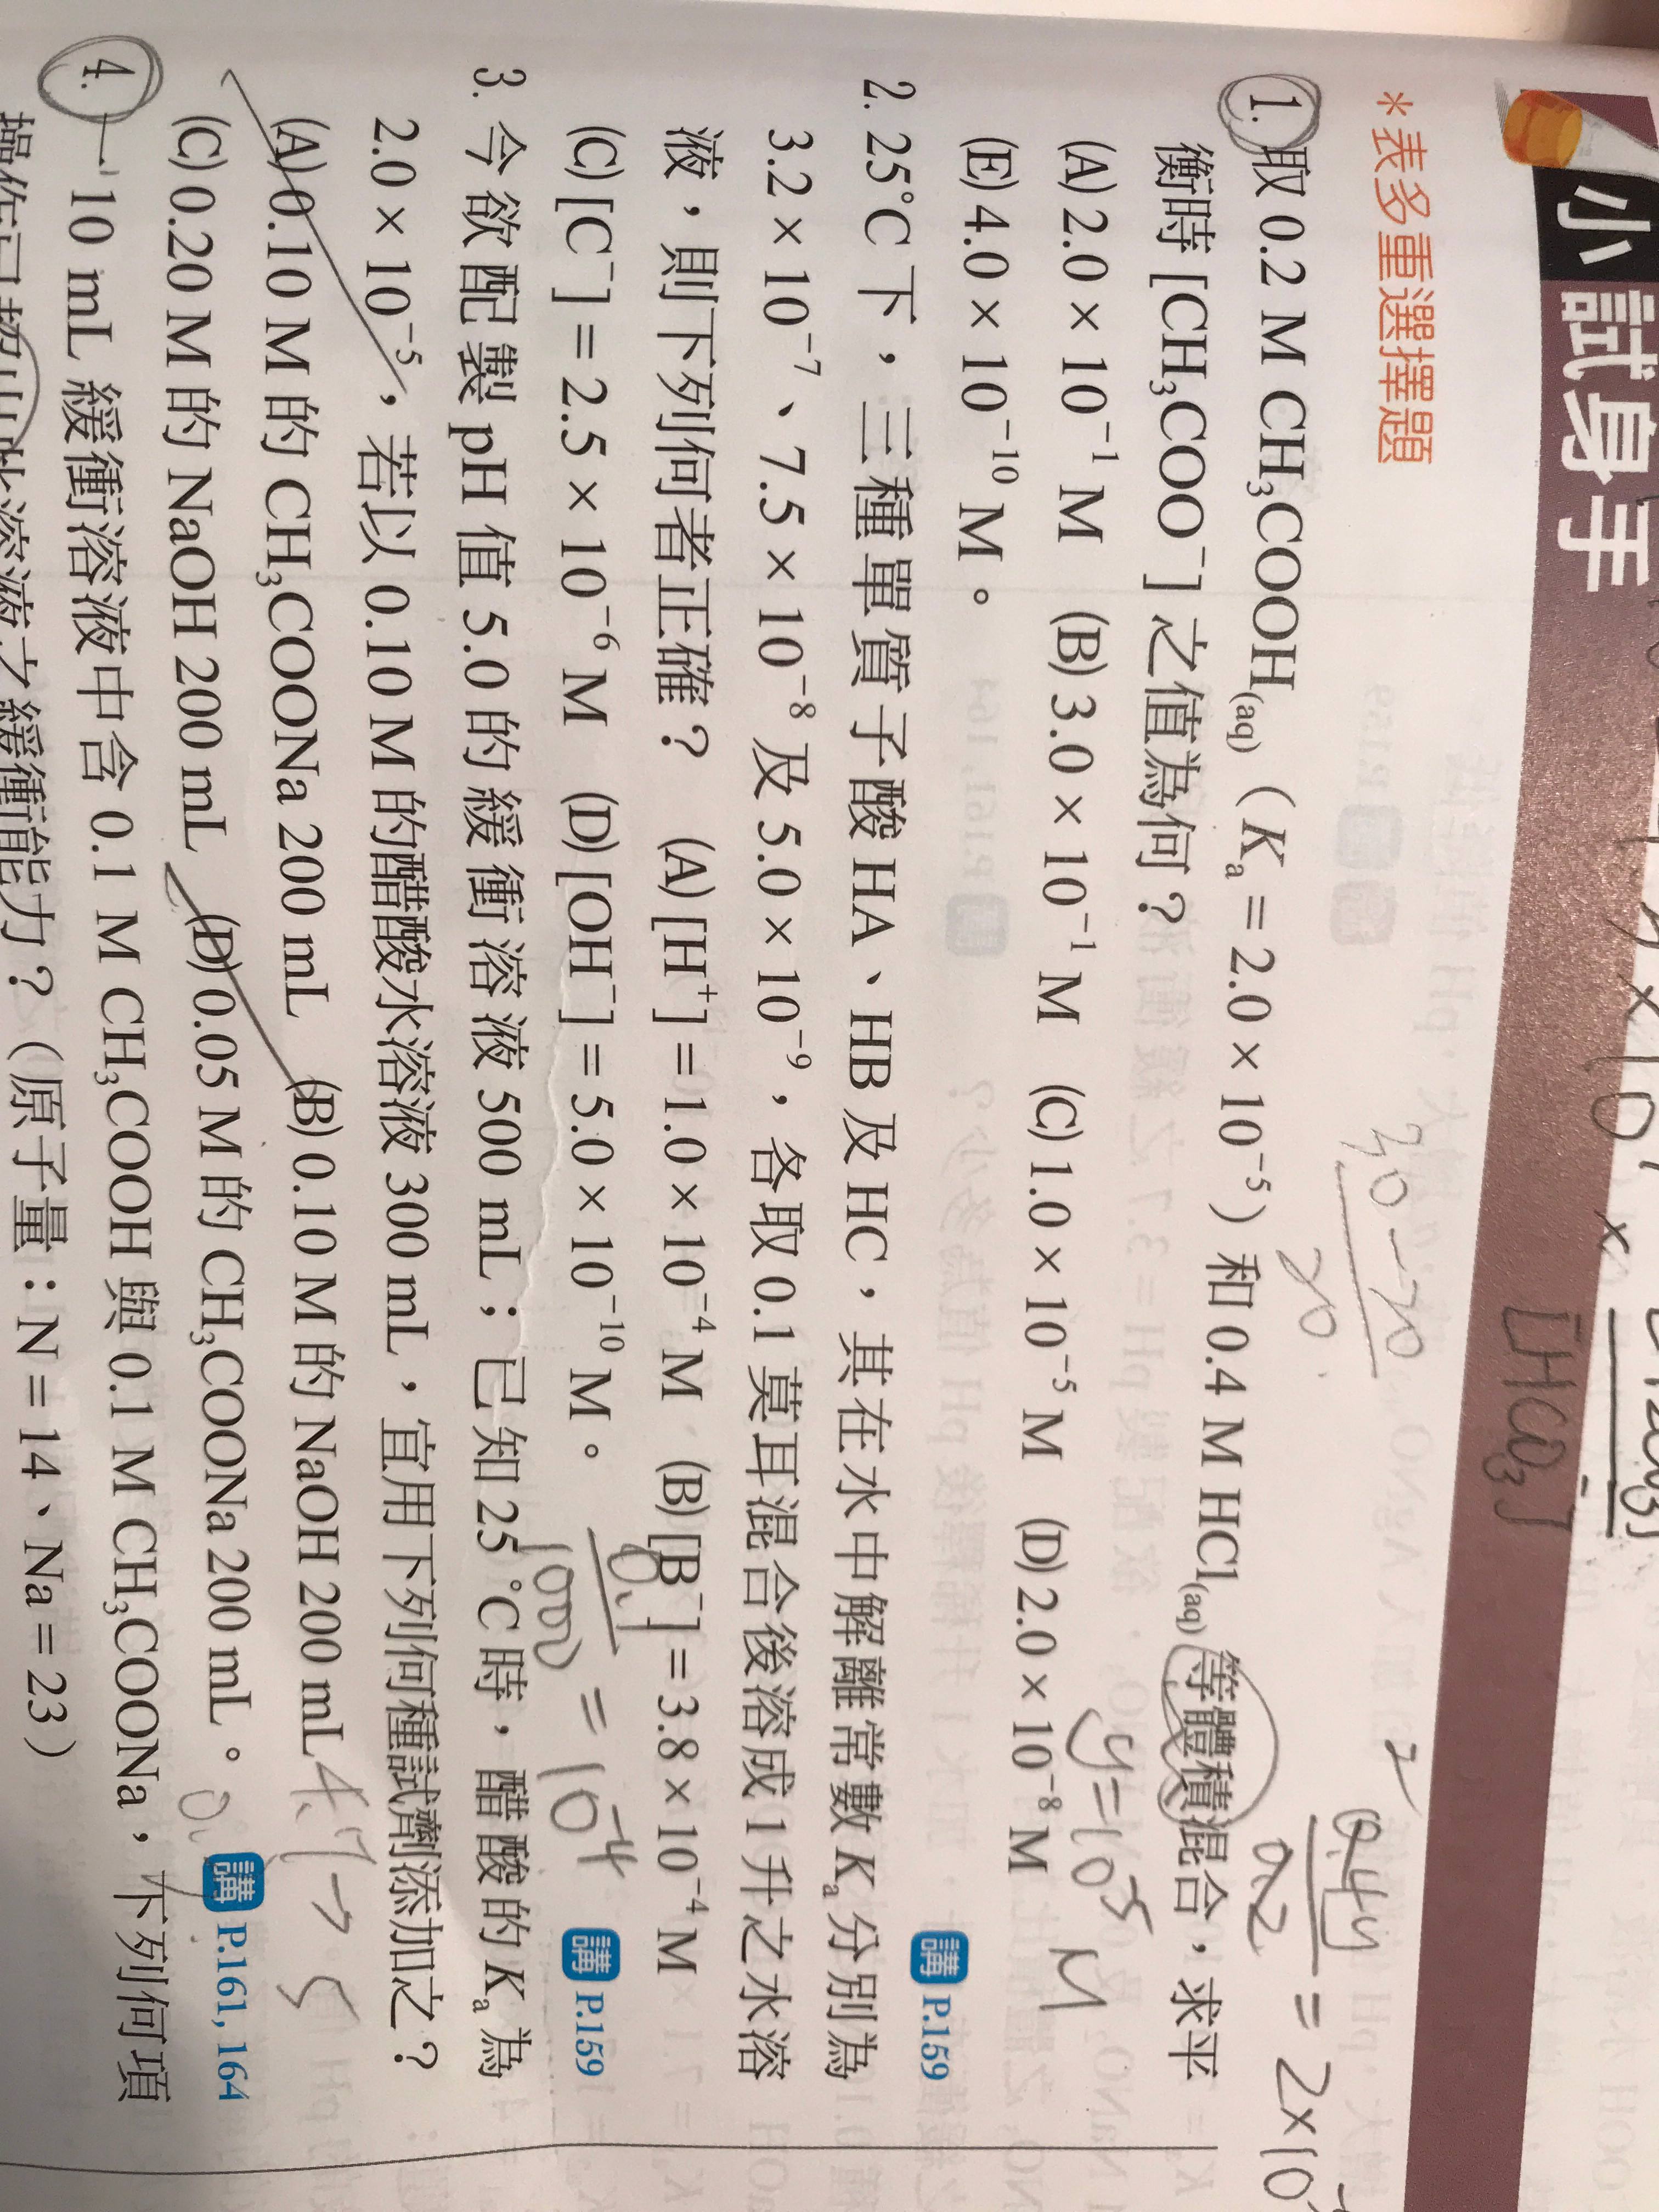 小試身手
[HCO₃]
*表多重選擇題
30-20
20
0.4y
0.2
= 2×10
1. 取 0.2 M CH₃COOH(aq)（Kₐ = 2.0 × 10⁻⁵）和 0.4 M HCl(aq) 等體積混合，求平
衡時 [CH₃COO⁻] 之值為何？
y=10⁻⁵ M
(A) 2.0 × 10⁻¹ M (B) 3.0 × 10⁻¹ M (C) 1.0 × 10⁻⁵ M (D) 2.0 × 10⁻⁸ M
(E) 4.0 × 10⁻¹⁰ M。
講 P.159
2. 25°C 下，三種單質子酸 HA、HB 及 HC，其在水中解離常數 Kₐ 分別為
3.2 × 10⁻⁷、7.5 × 10⁻⁸ 及 5.0 × 10⁻⁹，各取 0.1 莫耳混合後溶成 1 升之水溶
液，則下列何者正確？ (A) [H⁺] = 1.0 × 10⁻⁴ M (B) [B⁻] = 3.8 × 10⁻⁴ M
(C) [C⁻] = 2.5 × 10⁻⁶ M (D) [OH⁻] = 5.0 × 10⁻¹⁰ M。
講 P.159
0.1
1000
= 10⁻⁴
3. 今欲配製 pH 值 5.0 的緩衝溶液 500 mL；已知 25 °C 時，醋酸的 Kₐ 為
2.0 × 10⁻⁵，若以 0.10 M 的醋酸水溶液 300 mL，宜用下列何種試劑添加之？
(A) 0.10 M 的 CH₃COONa 200 mL (B) 0.10 M 的 NaOH 200 mL
4.7→5
(C) 0.20 M 的 NaOH 200 mL (D) 0.05 M 的 CH₃COONa 200 mL。
講 P.161, 164
4. 一 10 mL 緩衝溶液中含 0.1 M CH₃COOH 與 0.1 M CH₃COONa，下列何項
操作已超出此溶液之緩衝能力？（原子量：N = 14、Na = 23）